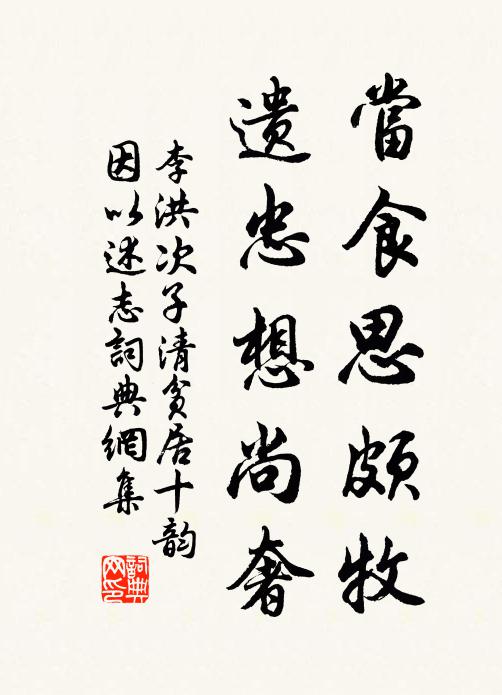 當食思頗牧
遺忠想尚奢
李洪次子清貧居十韵
因以述志詞典網集
詞典
网印